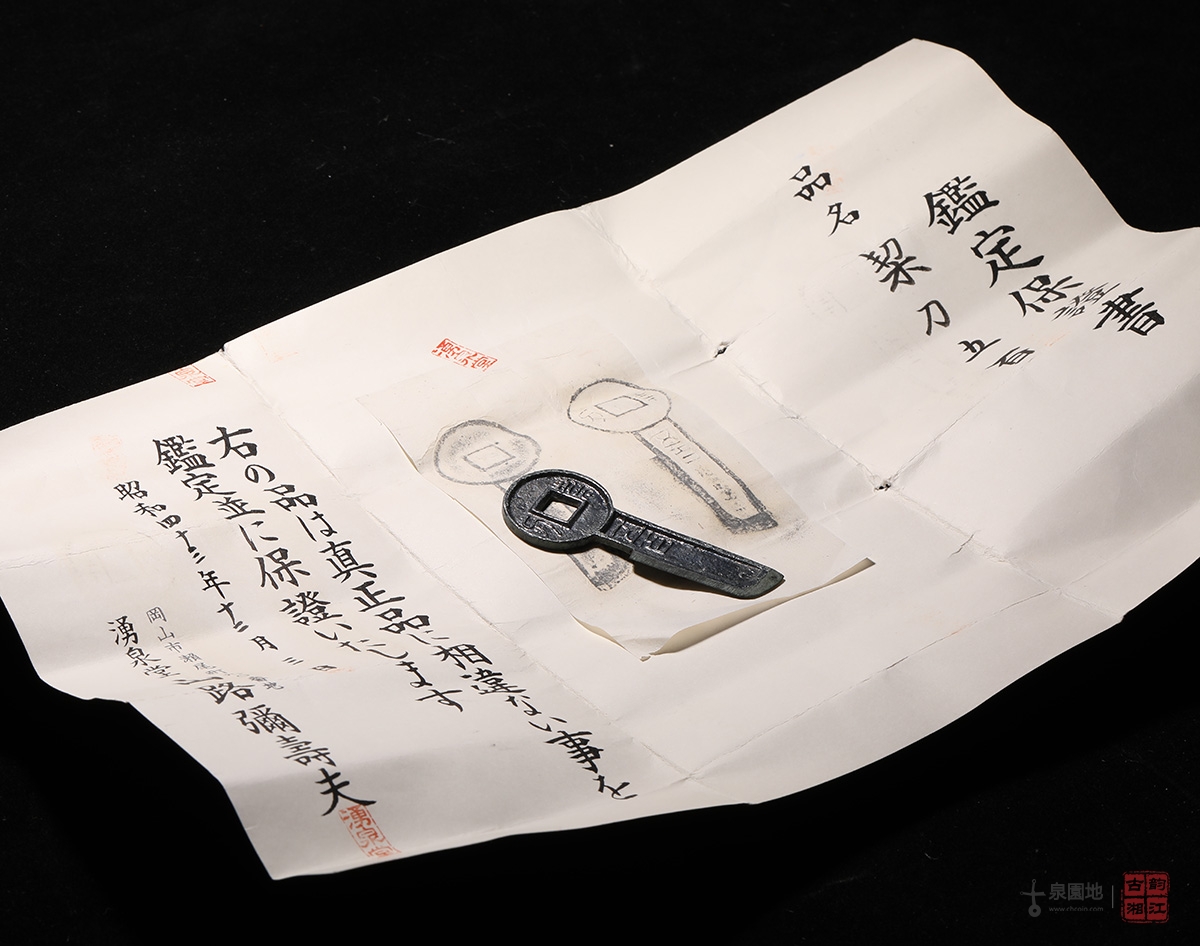 鑑定保證書
品名
契刀五百
右の品は真正品に相違ない事を
鑑定並に保證いたします
昭和四十三年十二月三日
岡山市
湧泉堂
一路彌壽夫
湧泉堂
湧泉堂
泉園地
www.chcoin.com
韵江
古湘